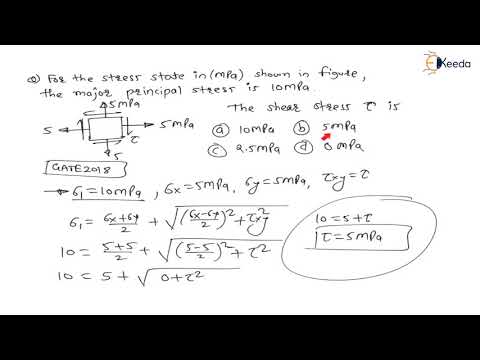 Q) For the stress state in (MPa) shown in figure,
the major principal stress is 10MPa.
Ekeeda
5MPa
The shear stress τ is
5
5MPa
τ
5
ⓐ 10MPa ⓑ 5MPa
ⓒ 2.5MPa ⓓ 0MPa
GATE2018
→ σ₁=10MPa, σx=5MPa, σy=5MPa, τxy=τ
σ₁ = (σx+σy)/2 + √((σx-σy)/2)² + τxy²
10 = (5+5)/2 + √((5-5)/2)² + τ²
10 = 5 + √0+τ²
10=5+τ
τ=5MPa